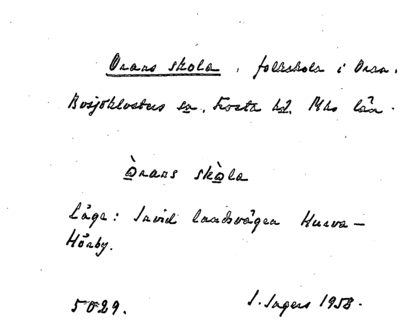 Orars skola, folkskola i Orra.
Bosjöklosters sn, Frosta hd, Mhs län.
Òrars skòla
Läge: Invid landsvägen Hurva –
Hörby.
5029. I. Ingers 1958.